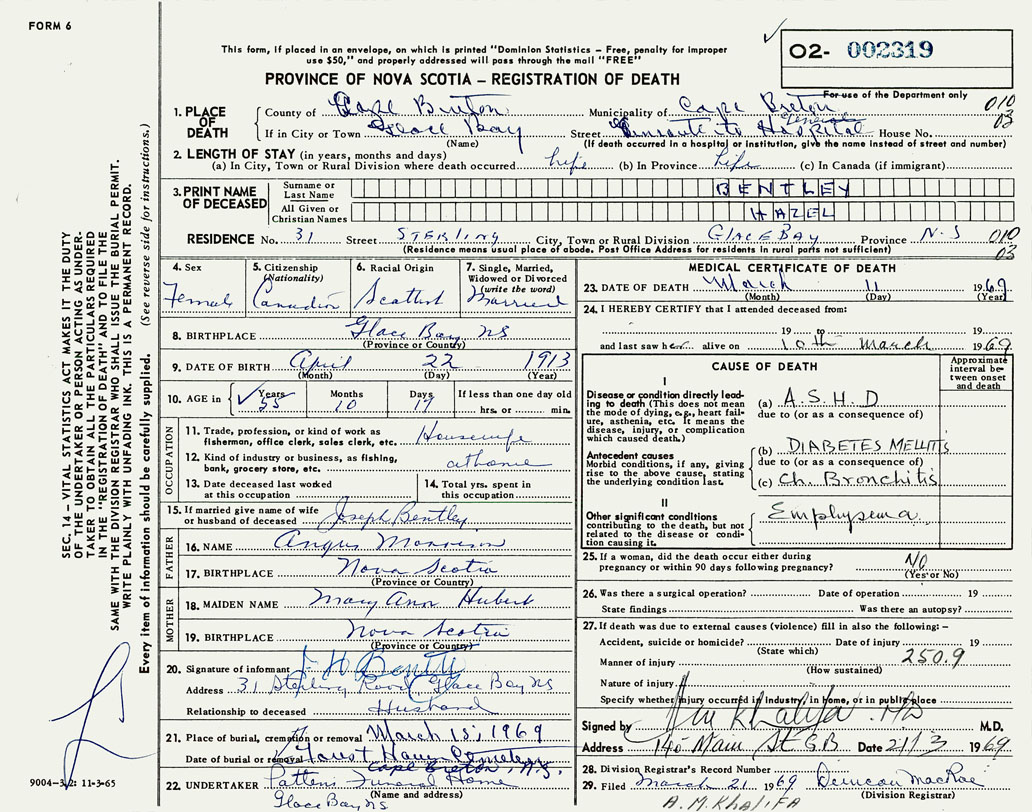 FORM 6
This form, if placed in an envelope, on which is printed "Dominion Statistics – Free, penalty for improper
use $50," and properly addressed will pass through the mail "FREE"
O2- 002319
PROVINCE OF NOVA SCOTIA – REGISTRATION OF DEATH
For use of the Department only
1. PLACE OF DEATH
County of Cape Breton Municipality of Cape Breton 010
If in City or Town Glace Bay Street Enroute to General Hospital House No. 03
(Name) (If death occurred in a hospital or institution, give the name instead of street and number)
2. LENGTH OF STAY (in years, months and days)
(a) In City, Town or Rural Division where death occurred life (b) In Province life (c) In Canada (if immigrant)
3. PRINT NAME OF DECEASED
Surname or Last Name BENTLEY
All Given or Christian Names HAZEL
RESIDENCE No. 31 Street STERLING City, Town or Rural Division GLACE BAY Province N-S 010
(Residence means usual place of abode. Post Office Address for residents in rural parts not sufficient) 03
4. Sex
Female
5. Citizenship (Nationality)
Canadian
6. Racial Origin
Scottish
7. Single, Married, Widowed or Divorced (write the word)
Married
8. BIRTHPLACE Glace Bay NS
(Province or Country)
9. DATE OF BIRTH April 22 1913
(Month) (Day) (Year)
10. AGE in Years Months Days If less than one day old
55 10 17 hrs. or min.
OCCUPATION
11. Trade, profession, or kind of work as
fisherman, office clerk, sales clerk, etc. Housewife
12. Kind of industry or business, as fishing,
bank, grocery store, etc. at home
13. Date deceased last worked
at this occupation
14. Total yrs. spent in
this occupation
15. If married give name of wife
or husband of deceased Joseph Bentley
FATHER
16. NAME Angus Morrison
17. BIRTHPLACE Nova Scotia
(Province or Country)
MOTHER
18. MAIDEN NAME Mary Ann Hubert
19. BIRTHPLACE Nova Scotia
(Province or Country)
20. Signature of informant J H Bentley
Address 31 Sterling Road Glace Bay NS
Relationship to deceased Husband
21. Place of burial, cremation or removal March 15, 1969
Date of burial or removal Forest Haven Cemetery
Cape Breton, N.S.
22. UNDERTAKER Patten Funeral Home
(Name and address)
Glace Bay NS
MEDICAL CERTIFICATE OF DEATH
23. DATE OF DEATH March 11 1969
(Month) (Day) (Year)
24. I HEREBY CERTIFY that I attended deceased from:
19 to 19
and last saw her alive on 10th March 1969
CAUSE OF DEATH
Approximate interval between onset and death
I
Disease or condition directly leading to death (This does not mean
the mode of dying, e.g., heart failure, asthenia, etc. It means the
disease, injury, or complication
which caused death.)
(a) A.S.H.D
due to (or as a consequence of)
Antecedent causes
Morbid conditions, if any, giving
rise to the above cause, stating
the underlying condition last.
(b) DIABETES MELLITIS
due to (or as a consequence of)
(c) Ch. Bronchitis
II
Other significant conditions
contributing to the death, but not
related to the disease or condition causing it.
Emphysema
25. If a woman, did the death occur either during
pregnancy or within 90 days following pregnancy? NO
(Yes or No)
26. Was there a surgical operation? Date of operation 19
State findings Was there an autopsy?
27. If death was due to external causes (violence) fill in also the following: –
Accident, suicide or homicide? Date of injury 19
(State which)
Manner of injury 250.9
(How sustained)
Nature of injury
Specify whether injury occurred in industry, in home, or in public place
Signed by Khalifa MD M.D.
Address 140 Main St G.B Date 21/3 1969
28. Division Registrar's Record Number
29. Filed March 21 1969 Duncan MacRae
(Division Registrar)
A.M. KHALIFA
SEC. 14 – VITAL STATISTICS ACT MAKES IT THE DUTY
OF THE UNDERTAKER OR PERSON ACTING AS UNDERTAKER TO OBTAIN ALL THE PARTICULARS REQUIRED
IN THE "REGISTRATION OF DEATH" AND TO FILE THE
SAME WITH THE DIVISION REGISTRAR WHO SHALL ISSUE THE BURIAL PERMIT.
WRITE PLAINLY WITH UNFADING INK. THIS IS A PERMANENT RECORD.
Every item of information should be carefully supplied. (See reverse side for instructions.)
9004-3.2: 11-3-65